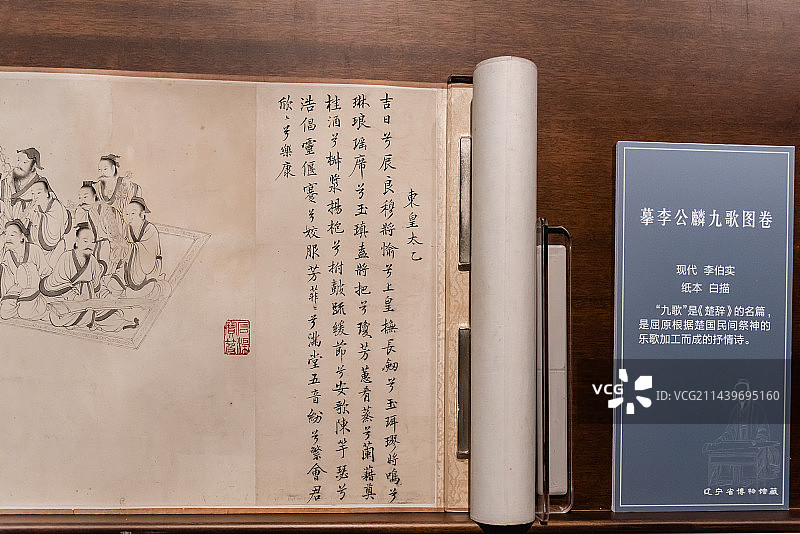 東皇太乙
吉日兮辰良穆將愉兮上皇撫長劒兮玉珥璆將鳴兮
琳琅瑶席兮玉瑱盍將把兮瓊芳蕙肴蒸兮蘭藉奠
桂酒兮椒漿揚枹兮拊鼓疏緩節兮安歌陳竽瑟兮
浩倡靈偃蹇兮姣服芳菲〻兮滿堂五音紛兮繁會君
欣〻兮樂康
摹李公麟九歌图卷
现代 李伯实
纸本 白描
“九歌”是《楚辞》的名篇，
是屈原根据楚国民间祭神的
乐歌加工而成的抒情诗。
辽宁省博物馆藏
VCG
VCG211439695160